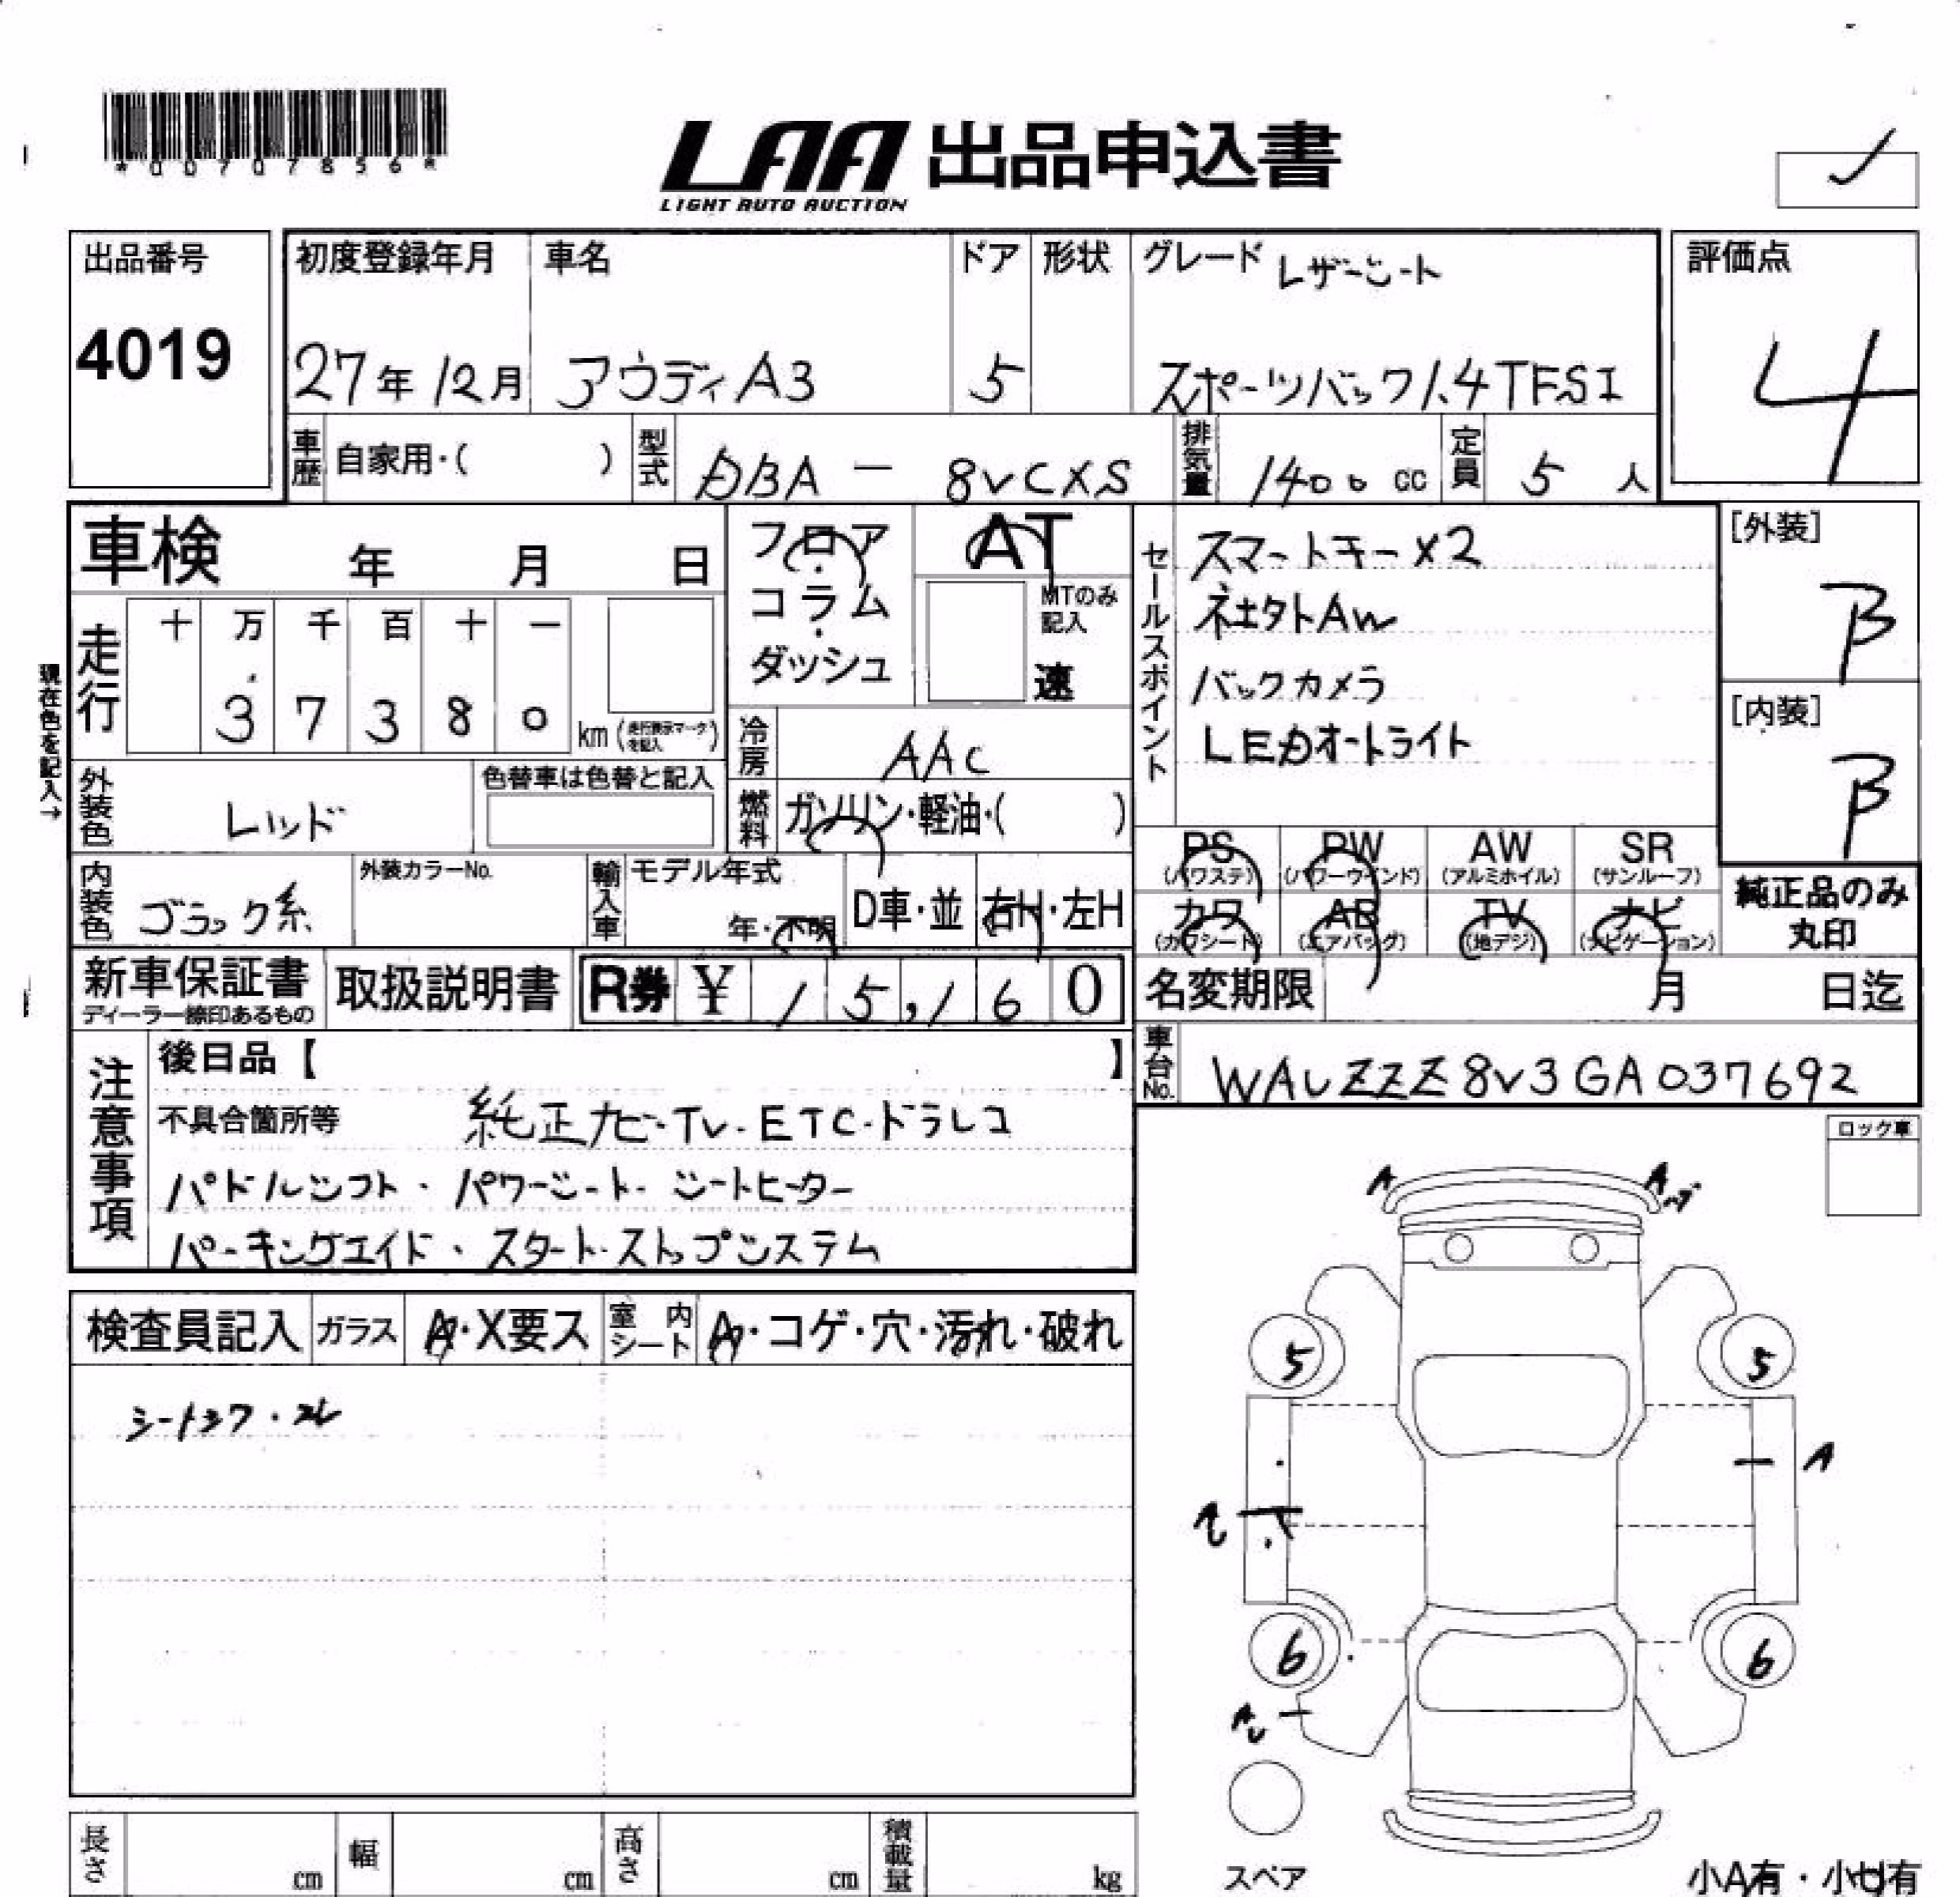 *00707856*
LAA 出品申込書
LIGHT AUTO AUCTION
出品番号
4019
初度登録年月
27年 12月
車名
アウディ A3
ドア
5
形状
グレード レザーシート
スポーツバック 1.4 TFSI
評価点
4
車歴 自家用・( )
型式 DBA - 8VCXS
排気量 1400 cc
定員 5 人
車検 年 月 日
フロア・コラム・ダッシュ
AT
MTのみ記入
速
セールスポイント
スマートキー×2
バックカメラ
LEDオートライト
[外装]
B
[内装]
B
現在色を記入→
走行
十 万 千 百 十 一
3 7 3 8 0 km (走行表示マークを記入)
冷房 AAC
燃料 ガソリン・軽油・( )
外装色 レッド
色替車は色替と記入
内装色 ブラック系
外装カラーNo.
輸入車
モデル年式
年・不明
D車・並
右H・左H
PS (パワステ)
PW (パワーウインド)
AW (アルミホイル)
SR (サンルーフ)
カワ (カワシート)
AB (エアバッグ)
TV (地デジ)
ナビ (ナビゲーション)
純正品のみ丸印
新車保証書
ディーラー捺印あるもの
取扱説明書
R券 ¥ 15,160
名変期限 月 日迄
車台No. WAUZZZ8V3GA037692
注意事項
後日品【 】
不具合箇所等 純正ナビ・TV・ETC・ドラレコ
パドルシフト・パワーシート・シートヒーター
パーキングエイド・スタート・ストップシステム
ロック車
検査員記入
ガラス A・X要ス
室内シート A・コゲ・穴・汚れ・破れ
A
A
5
5
A
6
6
スペア
長さ cm
幅 cm
高さ cm
積載量 kg
小A有・小U有